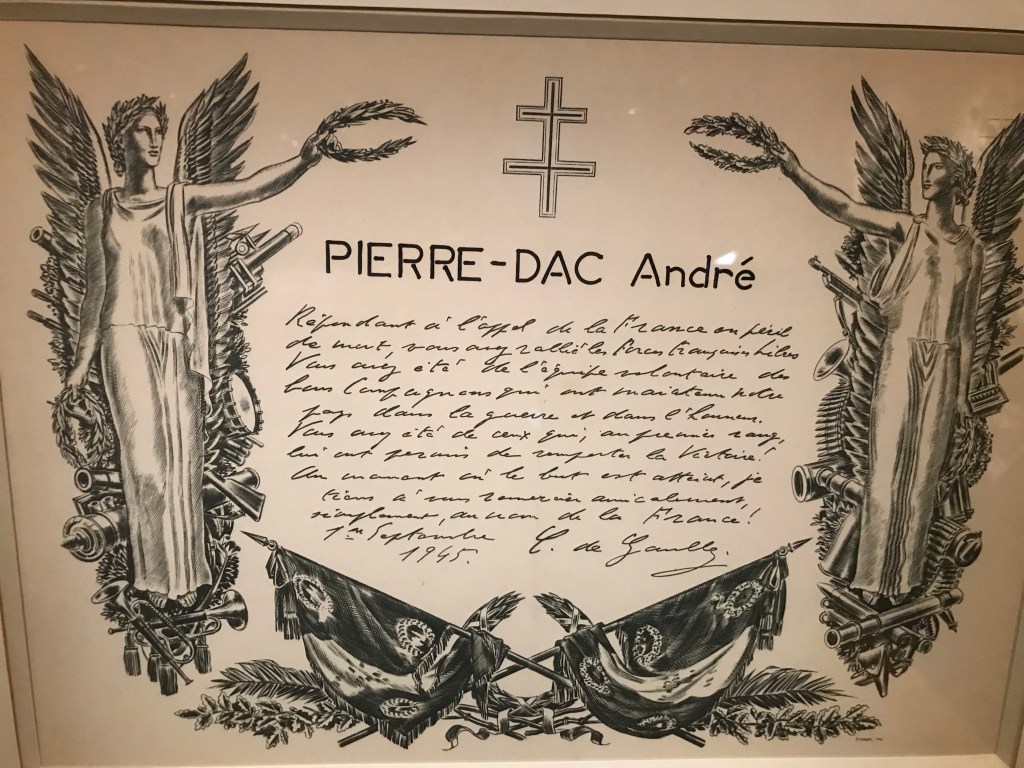 PIERRE-DAC André
Répondant à l'appel de la France en péril
de mort, vous avez rallié les Forces françaises Libres
Vous avez été de l'équipe volontaire des
bons Compagnons qui ont maintenu notre
pays dans la guerre et dans l'honneur.
Vous avez été de ceux qui, au premier rang,
lui ont permis de remporter la Victoire!
Au moment où le but est atteint, je
tiens à vous remercier amicalement,
simplement, au nom de la France!
1er Septembre
1945.
C. de Gaulle.